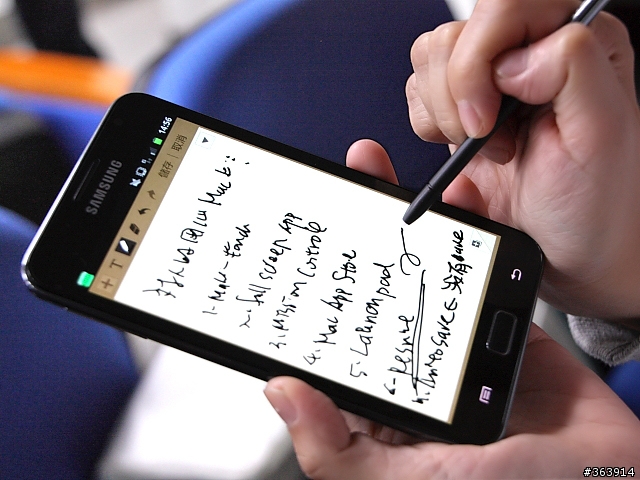 SAMSUNG
14:56
儲存 | 取消
T
回 Mac
1. Multi-touch
2. full screen App
3. Mission Control
4. Mac App Store
5. Launchpad
6. Resume
7. Auto save
#363914